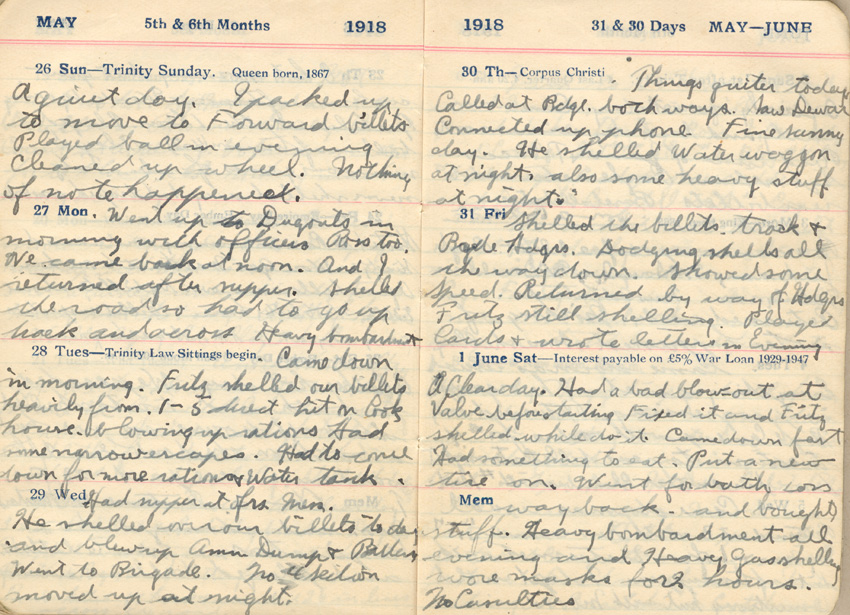 MAY 5th & 6th Months 1918
26 Sun—Trinity Sunday. Queen born, 1867
A quiet day. I packed up
to move to Forward billets
Played ball in evening
Cleaned up wheel. Nothing
of note happened.
27 Mon. Went up to Dugouts in
morning with officers Pass too.
We came back at noon. And I
returned after supper. Shelled
the road so had to go up
back and across Heavy bombardment
28 Tues—Trinity Law Sittings begin. Came down
in morning. Fritz shelled our billets
heavily from 1-5 direct hit on Cook
house. blowing up rations Had
some narrow escapes. Had to come
down for more rations & Water tank.
29 Wed Had supper at Ofrs Mess.
He shelled over our billets to day
and blew up Amn Dump & Battery
Went to Brigade. No 4 section
moved up at night.
1918 31 & 30 Days MAY—JUNE
30 Th—Corpus Christi. Things quiter today
Called at Bdge. both ways. Saw Dewar
Connected up phone. Fine sunny
day. He shelled Water waggon
at night also some heavy stuff
at night.
31 Fri Shelled the billets. track &
Bgde Hdqrs. Dodging shells all
the way down. Showed some
speed. Returned by way of Hdqrs
Fritz still shelling. Played
Cards & wrote letters in Evening
1 June Sat—Interest payable on £5% War Loan 1929-1947
A Clear day. Had a bad blow-out at
Valve before starting Fixed it and Fritz
shelled while do it. Came down fast
Had something to eat. Put a new
tire on. Went for bath
Mem way back. and bought
stuff. Heavy bombardment all
evening and Heavy Gas shelling
wore masks for 2 hours.
No Casulties